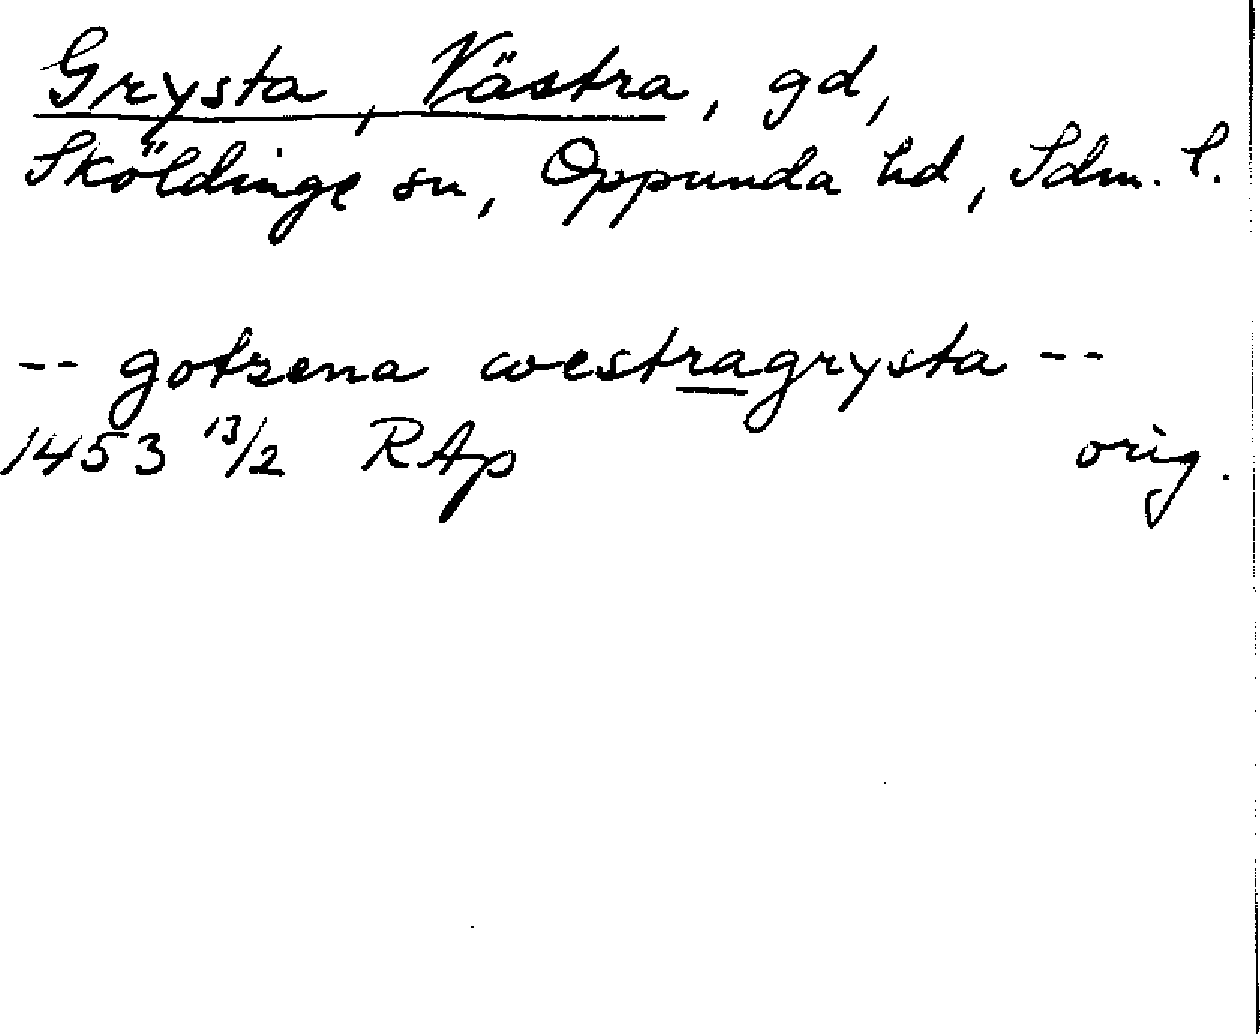 Grysta, Västra, gd,
Sköldinge sn, Oppunda hd, Sdm. l.
-- gotzena westragrysta --
1453 13/2 RAp orig.